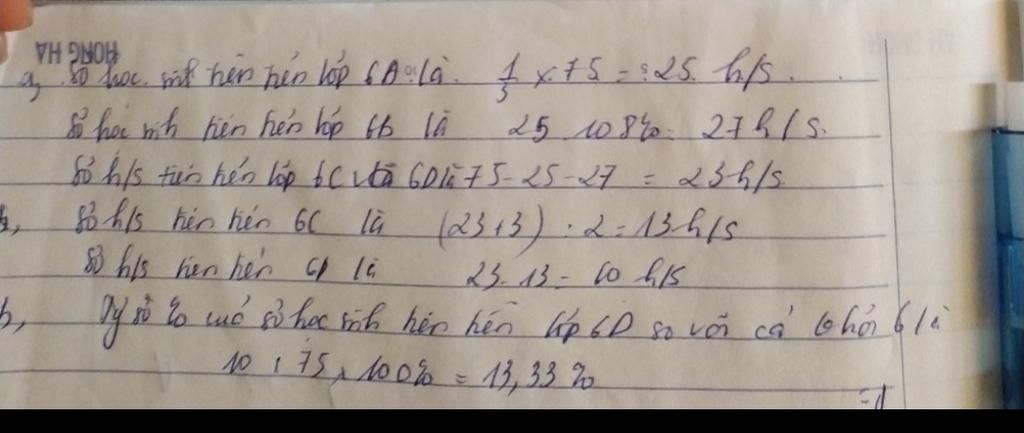 HONG HA
a, Số học sinh tiên tiến lớp 6A là 1/3 x 75 = 25 h/s.
Số học sinh tiên tiến lớp 6b là 25.108% = 27 h/s.
Số h/s tiên tiến lớp 6C và 6D là 75-25-27 = 23 h/s
Số h/s tiên tiến 6C là (23+3) : 2 = 13 h/s
Số h/s tiên tiến 6D là 23-13 = 10 h/s
b, Tỷ số % số học sinh tiên tiến lớp 6D so với cả khối 6 là
10 : 75 x 100% = 13,33 %